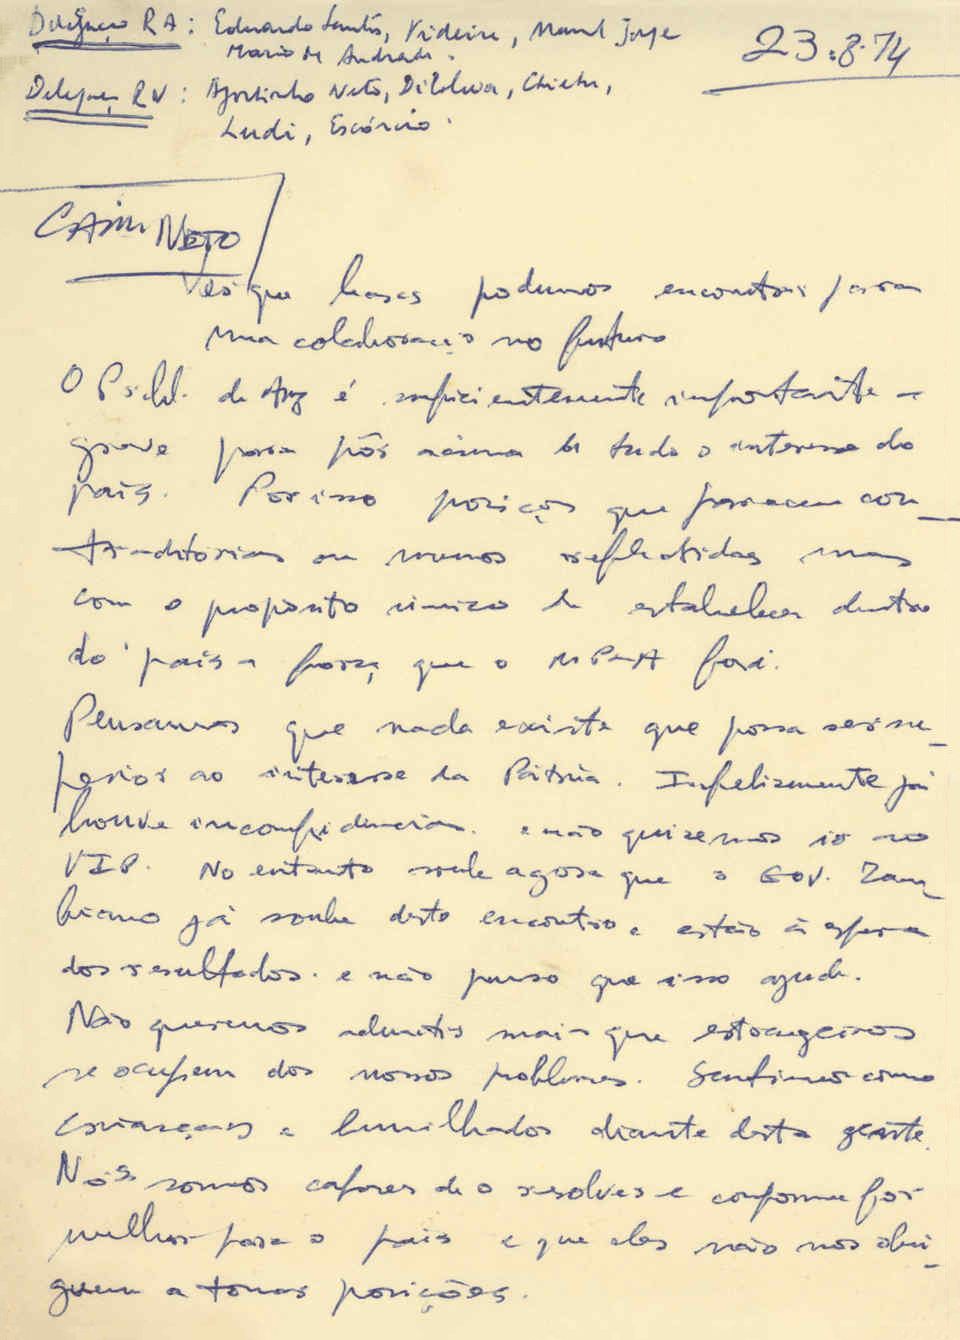 Delegação RA: Eduardo Santos, Videira, Manuel Jorge
Mario de Andrade.
23.8.74
Delegação RV: Agostinho Neto, Dilolwa, Chietu,
Ludi, Escórcio.
CAM NETO
Ver que bases podemos encontrar para
uma colaboração no futuro
O Probl. de Ang é suficientemente importante e
grave para pôr acima de tudo o interesse do
país. Por isso posições que parecem con_
traditórias ou menos reflectidas mas
com o propósito único de estabelecer dentro
do país a força que o MPLA foi.
Pensamos que nada existe que possa ser su_
perior ao interesse da Pátria. Infelizmente já
houve inconfidências. e não quizemos ir ao
VIP. No entanto soube agora que o GOV. Zam_
biano já soube deste encontro e estão à espera
dos resultados. e não penso que isso ajude.
Não queremos admitir mais que estrangeiros
se ocupem dos nossos problemas. Sentimos como
crianças e humilhados diante desta gente.
Nós somos capazes de o resolver e conforme for
melhor para o país e que eles não nos obri_
guem a tomar posições.